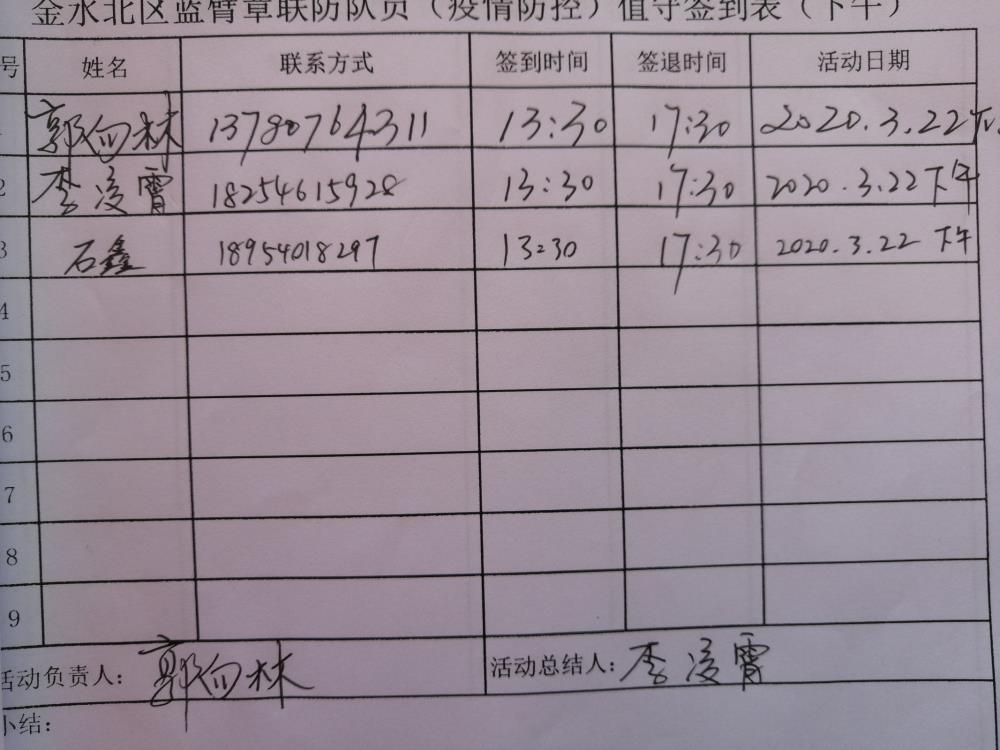 金水北区蓝臂章联防队员（疫情防控）值守签到表（下午）
号 姓名 联系方式 签到时间 签退时间 活动日期
郭向林 13780764311 13:30 17:30 2020.3.22下
2 李凌霄 18254615928 13:30 17:30 2020.3.22下午
3 石鑫 18954018297 13:30 17:30 2020.3.22 下午
4
5
6
7
8
9
活动负责人：郭向林 活动总结人：李凌霄
小结：